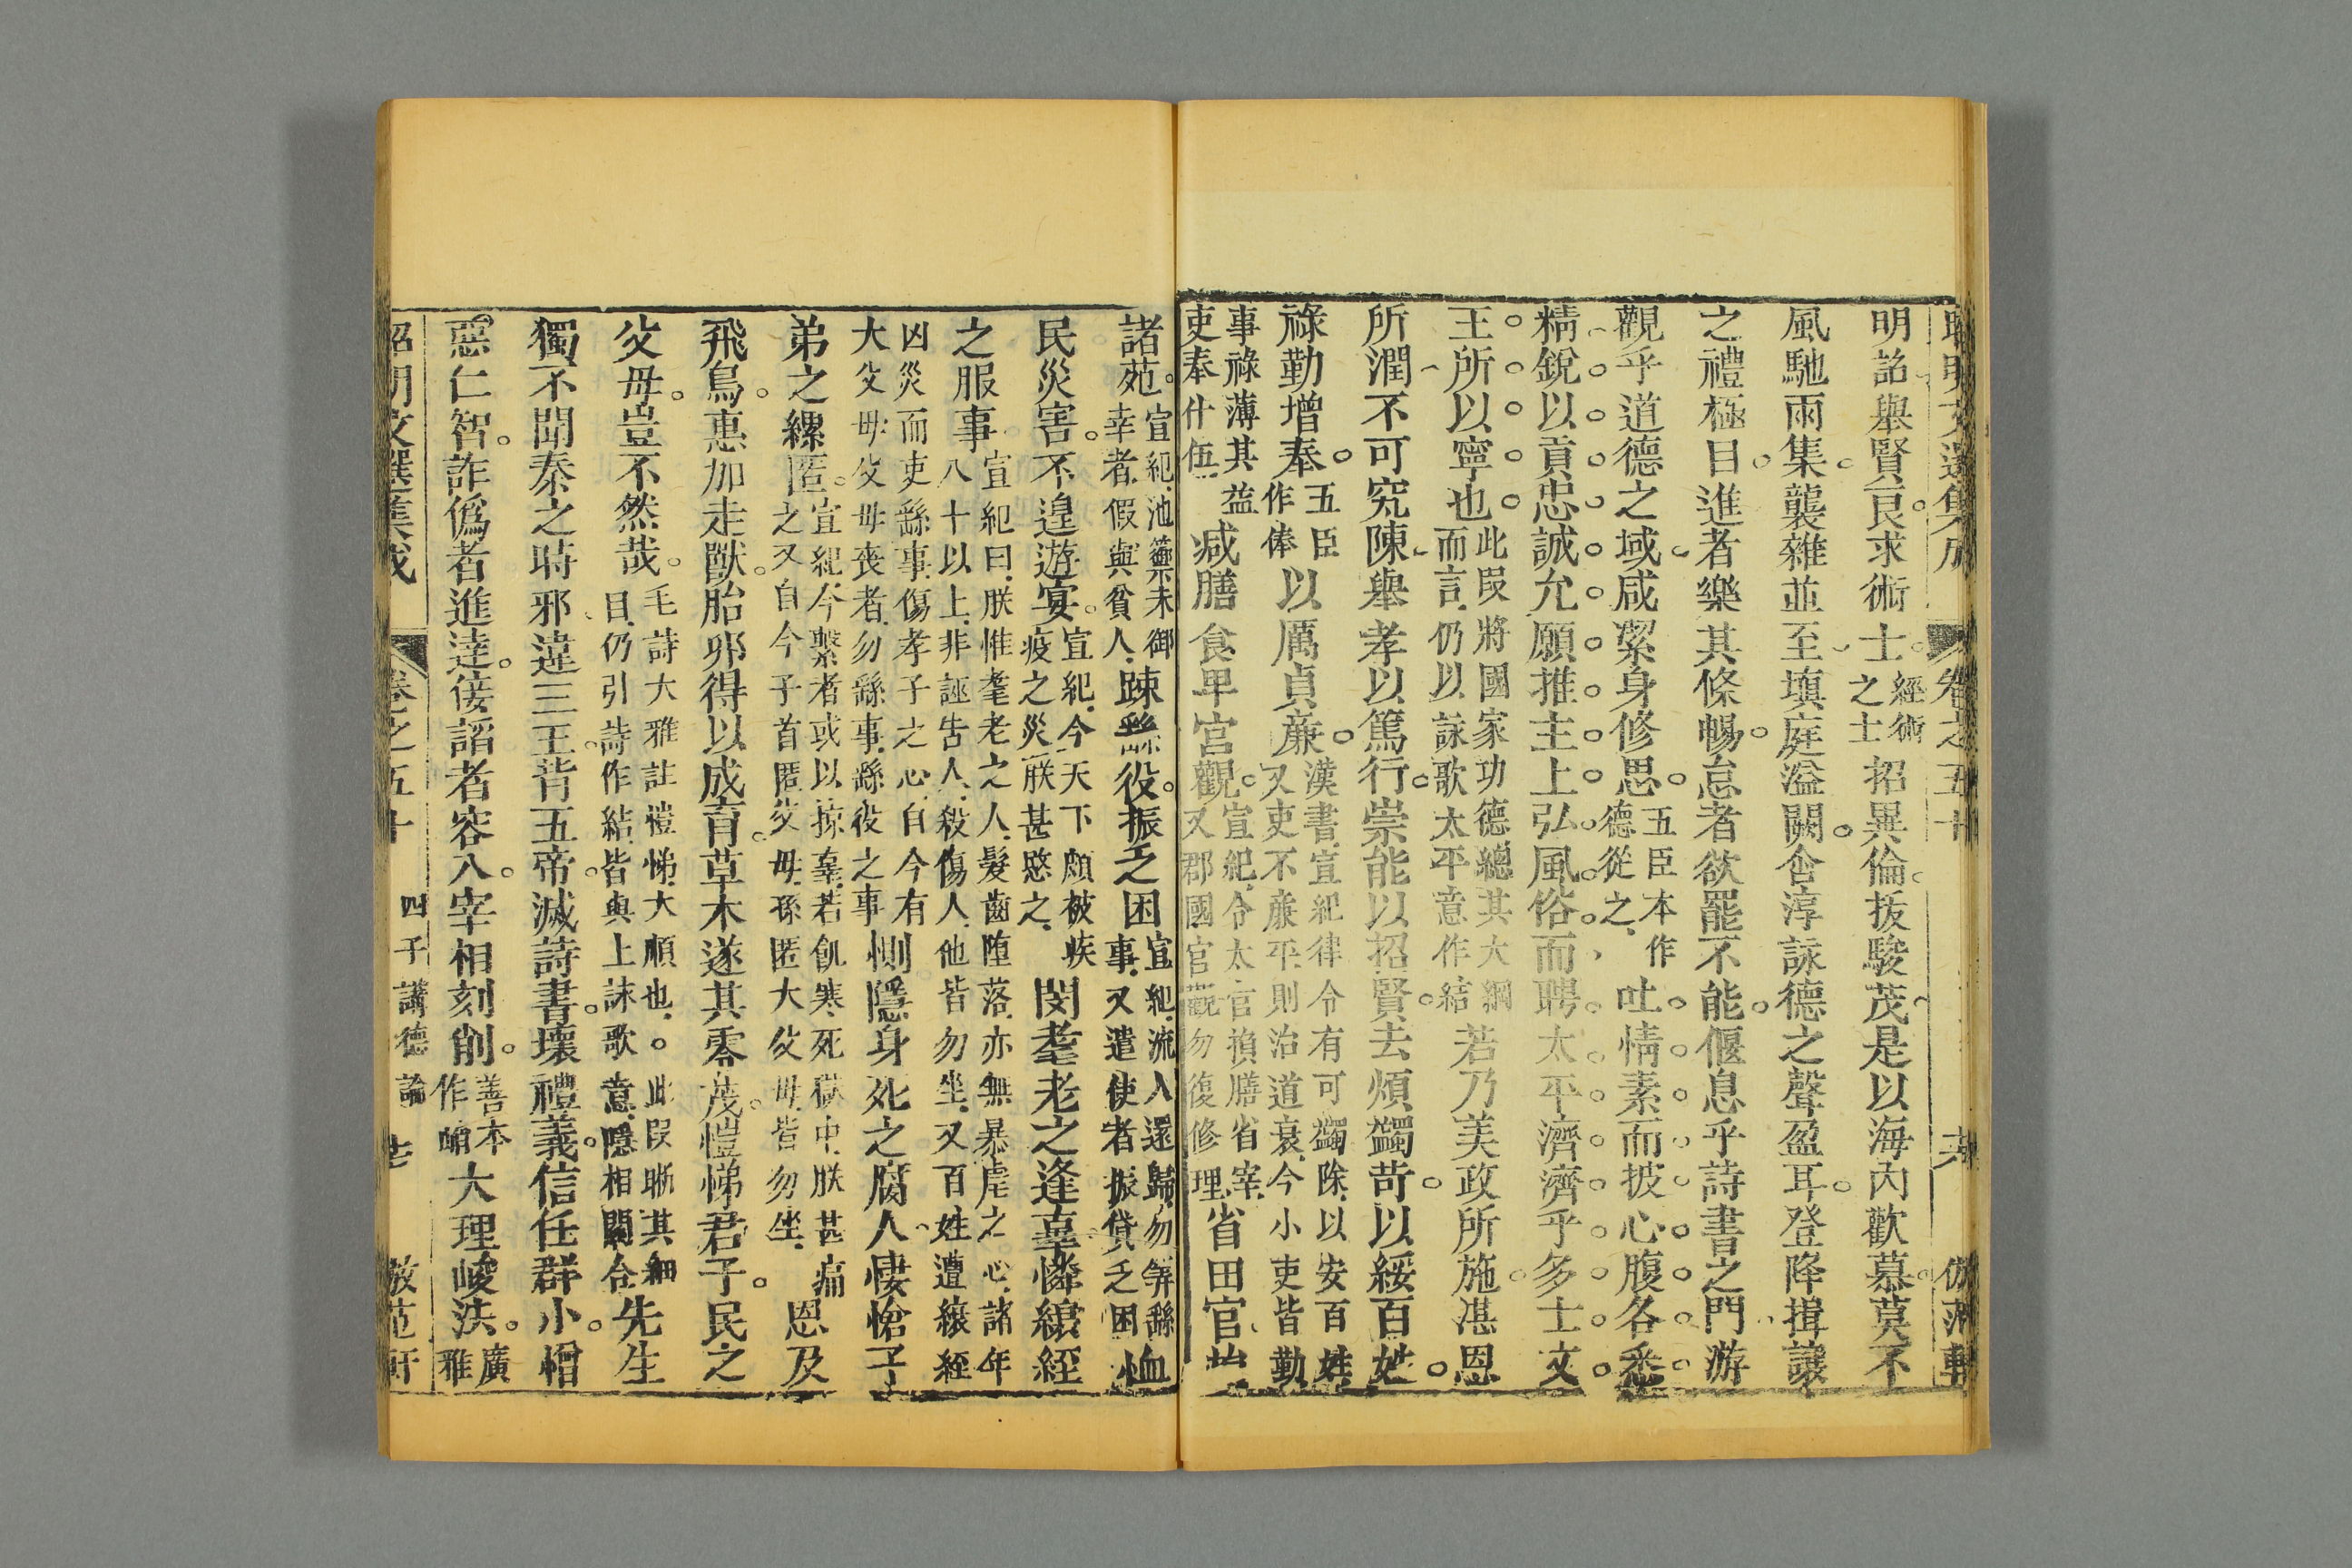 昭明文選集成 卷之五十 六 倣范軒
明詔舉賢良求術士經術之士招異倫拔駿茂是以海內歡慕莫不
風馳雨集襲雜並至填庭溢闕含淳詠德之聲盈耳登降揖讓
之禮極目進者樂其條暢怠者欲罷不能偃息乎詩書之門游
觀乎道德之域咸潔身修思五臣本作德從之吐情素而披心腹各悉
精銳以貢忠誠允願推主上弘風俗而聘太平濟濟乎多士文
王所以寧也此段將國家功德總其大綱而言仍以詠歌太平意作結若乃美政所施湛恩
所潤不可究陳舉孝以篤行崇能以招賢去煩蠲苛以綏百姓
祿勤增奉五臣作俸以厲貞廉漢書宣紀律令有可蠲除以安百姓又吏不廉平則治道衰今小吏皆勤
事祿薄其益吏奉什伍減膳食卑宮觀宣紀令太官損膳省宰又郡國官觀勿復修理省田官
諸苑宣紀池籞未御幸者假與貧人疎繇役振乏困宣紀流人還歸勿筭繇事又遣使者振貸乏困恤
民災害不遑遊宴宣紀今天下頗被疾疫之災朕甚愍之閔耄老之逢辜憐縗絰
之服事宣紀曰朕惟耄老之人髮齒墮落亦無暴虐之心諸年八十以上非誣告人殺傷人他皆勿坐又百姓遭縗絰
凶災而吏繇事傷孝子之心自今有大父母父母喪者勿繇事繇役之事惻隱身死之腐人悽愴子
弟之縲匿宣紀今繫者或以掠辜若飢寒死獄中朕甚痛之又自今子首匿父母孫匿大父母皆勿坐恩及
飛鳥惠加走獸胎卵得以成育草木遂其零茂愷悌君子民之
父母豈不然哉毛詩大雅註愷悌大順也。此段晰其細目仍引詩作結皆與上詠歌意隱相關合先生
獨不聞秦之時邪違三王背五帝滅詩書壞禮義信任群小憎
惡仁智詐偽者進達佞諂者容入宰相刻削善本作峭大理峻法廣雅
昭明文選集成 卷之五十 四子講德論 倣范軒